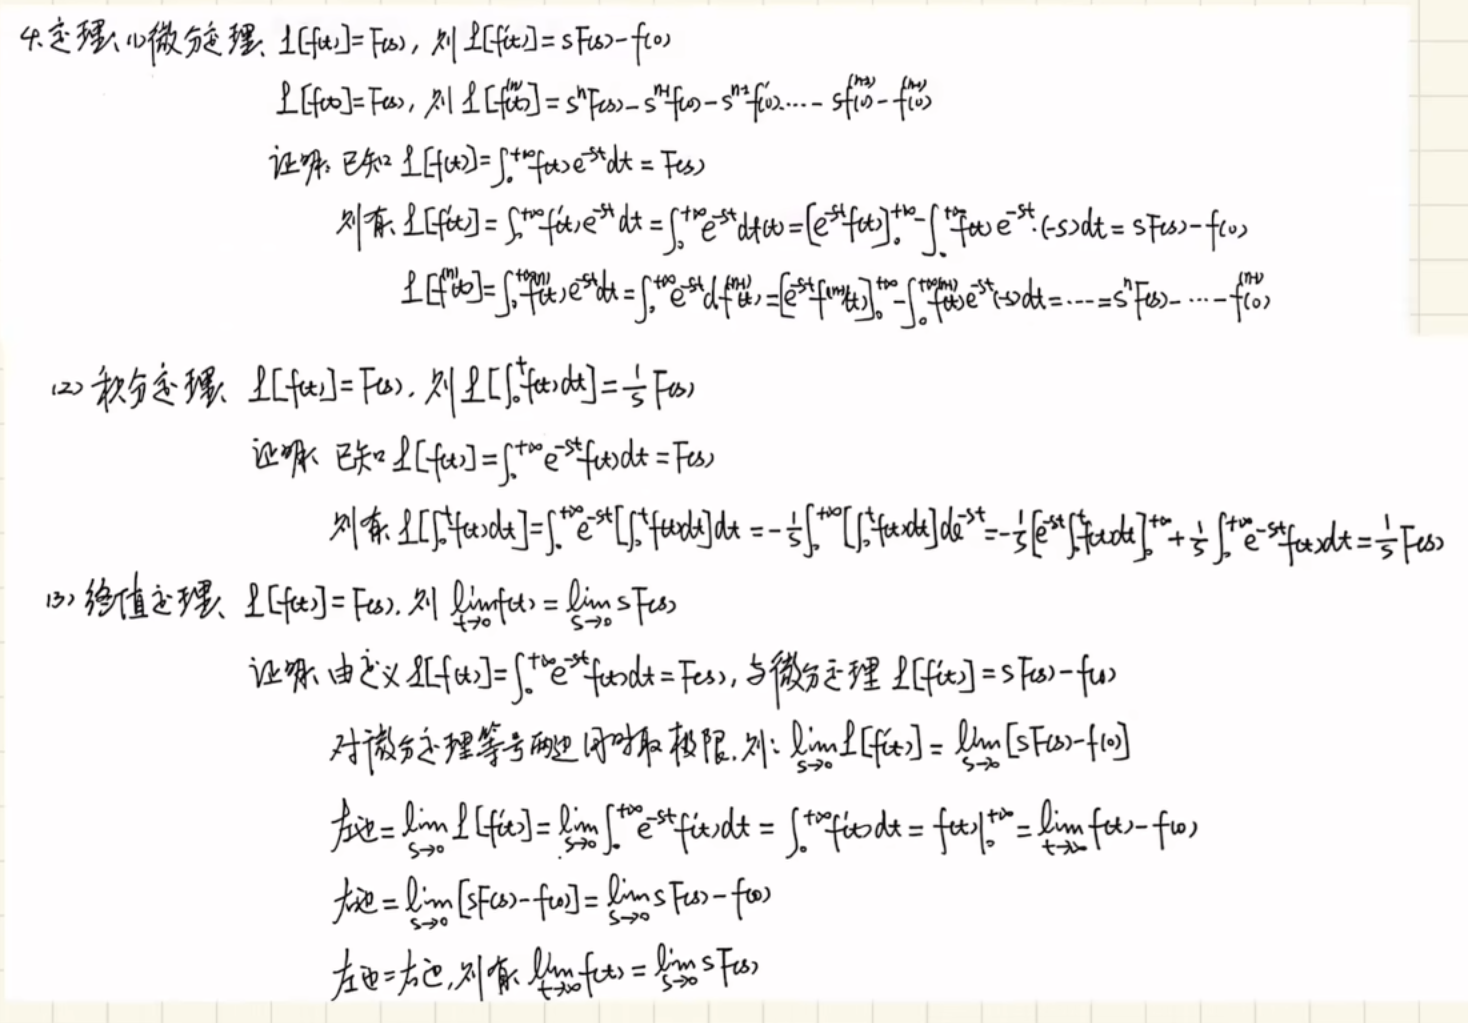 4.定理、(1)微分定理、ℒ[f(t)]=F(s),则ℒ[f'(t)]=sF(s)-f(0)
ℒ[f(t)]=F(s),则ℒ[f⁽ⁿ⁾(t)]=sⁿF(s)-sⁿ⁻¹f(0)-sⁿ⁻²f'(0)…-sf⁽ⁿ⁻²⁾(0)-f⁽ⁿ⁻¹⁾(0)
证明:已知ℒ[f(t)]=∫₀^{+∞}f(t)e^{-st}dt=F(s)
则有、ℒ[f'(t)]=∫₀^{+∞}f'(t)e^{-st}dt=∫₀^{+∞}e^{-st}df(t)=[e^{-st}f(t)]₀^{+∞}-∫₀^{+∞}f(t)e^{-st}·(-s)dt=sF(s)-f(0)
ℒ[f⁽ⁿ⁾(t)]=∫₀^{+∞}f⁽ⁿ⁾(t)e^{-st}dt=∫₀^{+∞}e^{-st}df⁽ⁿ⁻¹⁾(t)=[e^{-st}f⁽ⁿ⁻¹⁾(t)]₀^{+∞}-∫₀^{+∞}f⁽ⁿ⁻¹⁾(t)e^{-st}(-s)dt=…=sⁿF(s)-…-f⁽ⁿ⁻¹⁾(0)
(2)积分定理、ℒ[f(t)]=F(s),则ℒ[∫₀^t f(t)dt]=1/s F(s)
证明、已知ℒ[f(t)]=∫₀^{+∞}e^{-st}f(t)dt=F(s)
则有、ℒ[∫₀^t f(t)dt]=∫₀^{+∞}e^{-st}[∫₀^t f(t)dt]dt=-1/s∫₀^{+∞}[∫₀^t f(t)dt]de^{-st}=-1/s[e^{-st}∫₀^t f(t)dt]₀^{+∞}+1/s∫₀^{+∞}e^{-st}f(t)dt=1/s F(s)
(3)终值定理、ℒ[f(t)]=F(s),则 lim_{t→0}f(t)=lim_{s→0}sF(s)
证明、由定义ℒ[f(t)]=∫₀^{+∞}e^{-st}f(t)dt=F(s),与微分定理ℒ[f'(t)]=sF(s)-f(0)
对微分定理等号两边同时取极限,则:lim_{s→0}ℒ[f'(t)]=lim_{s→0}[sF(s)-f(0)]
左边=lim_{s→0}ℒ[f'(t)]=lim_{s→0}∫₀^{+∞}e^{-st}f'(t)dt=∫₀^{+∞}f'(t)dt=f(t)|₀^{+∞}=lim_{t→∞}f(t)-f(0)
右边=lim_{s→0}[sF(s)-f(0)]=lim_{s→0}sF(s)-f(0)
左边=右边,则有、lim_{t→∞}f(t)=lim_{s→0}sF(s)